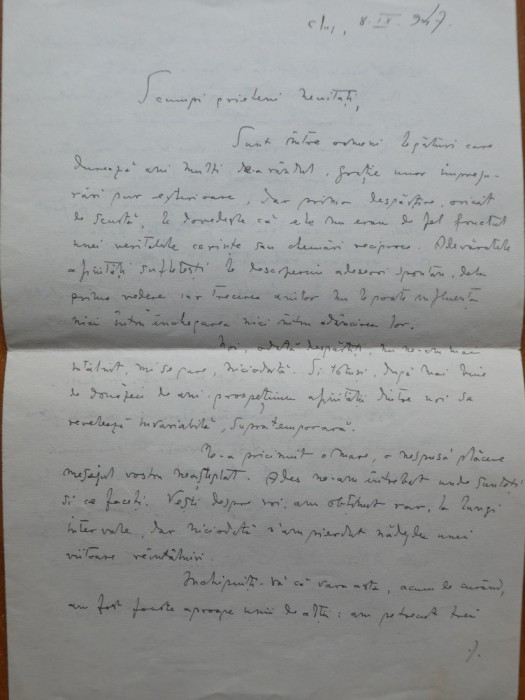 Cluj, 8.IX.947.
Scumpi prieteni neuitați,
Sunt între oameni legături care
durează ani mulți dearândul, grație unor împreju-
rări pur exterioare, dar prima despărțire, oricât
de scurtă, le dovedește că ele nu erau de fel fructul
unei veritabile cerințe sau chemări reciproce. Adevăratele
afinități sufletești le descoperim adeseori spontan, dela
prima vedere iar trecerea anilor nu le poate influența
nici întru închegarea nici întru adâncirea lor.
Noi, odată despărțiți, nu ne-am mai
întâlnit, mi se pare, niciodată. Și totuși, după mai bine
de douăzeci de ani prospețimea afinității dintre noi se
revelează invariabilă, supratemporară.
Ne-a pricinuit o mare, o nespusă plăcere
mesajul vostru neașteptat. Ades ne-am întrebat unde sunteți
și ce faceți. Vești despre voi, am obținut rar, la lungi
intervale, dar niciodată n'am pierdut nădejdea unei
viitoare reîntâlniri.
Închipuiți-vă că vara asta, acum de curând,
am fost foarte aproape unii de alții: am petrecut trei
./.